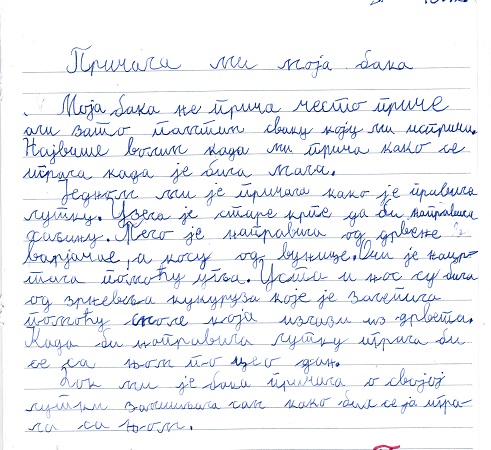 Причала ми моја бака
Моја бака не прича често приче
али зато памтим сваку коју ми исприча.
Највише волим када ми прича како се
играла када је била мала.
Једном ми је причала како је правила
лутку. Узела је старе крпе да би направила
хаљину. Тело је направила од дрвене
варјаче, а косу од вунице. Очи је нацр-
тала помоћу угља. Уста и нос су била
од зрневља кукуруза које је залепила
помоћу смоле која излази из дрвета.
Када би направила лутку играла би
се са њом по цео дан.
Док ми је бака причала о својој
лутки замишљала сам како бих се ја игра-
ла са њом.